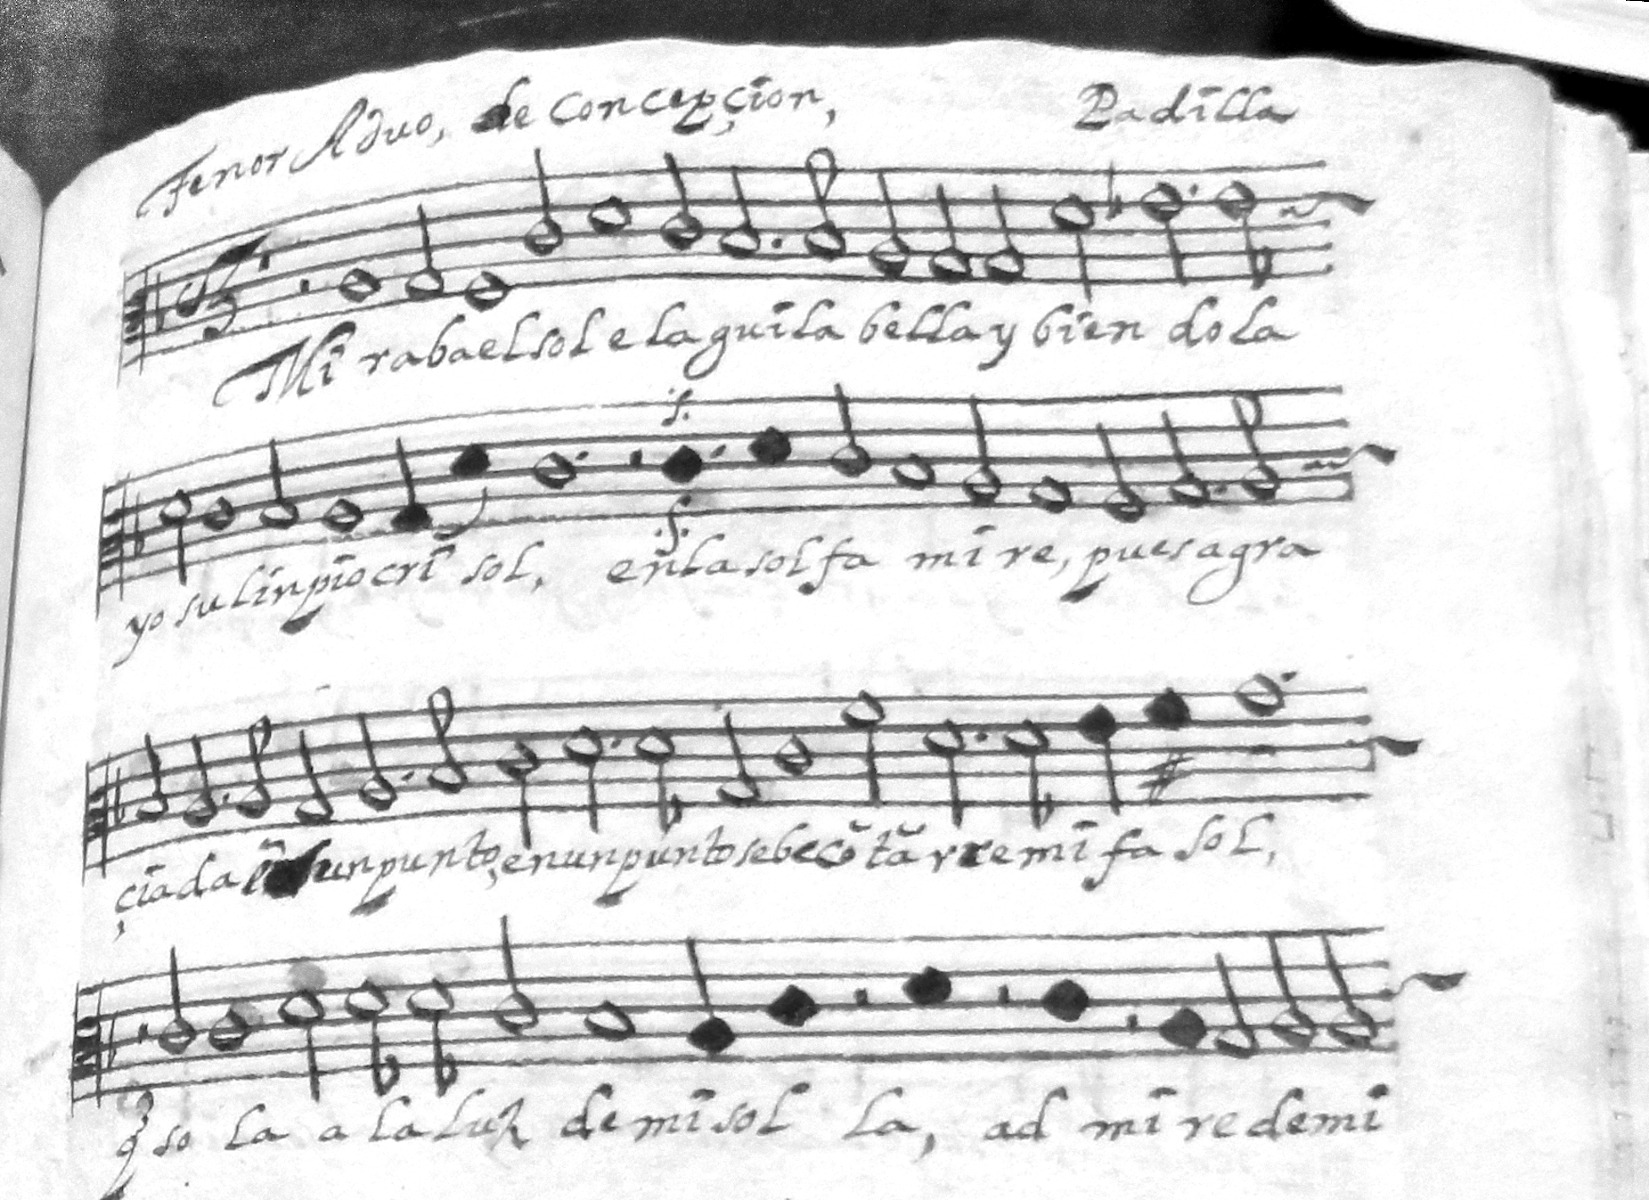 Tenor Aduo, de concepçion, Padilla
Mi rabaelsol e laguila bella y bien do la
yo su linpio cri sol, enla sol fa mi re, pues a gra
çia da un punto, en un punto se be cõ tã r re mi fa sol,
q̃ so la a la luz de mi sol la, ad mi re de mi